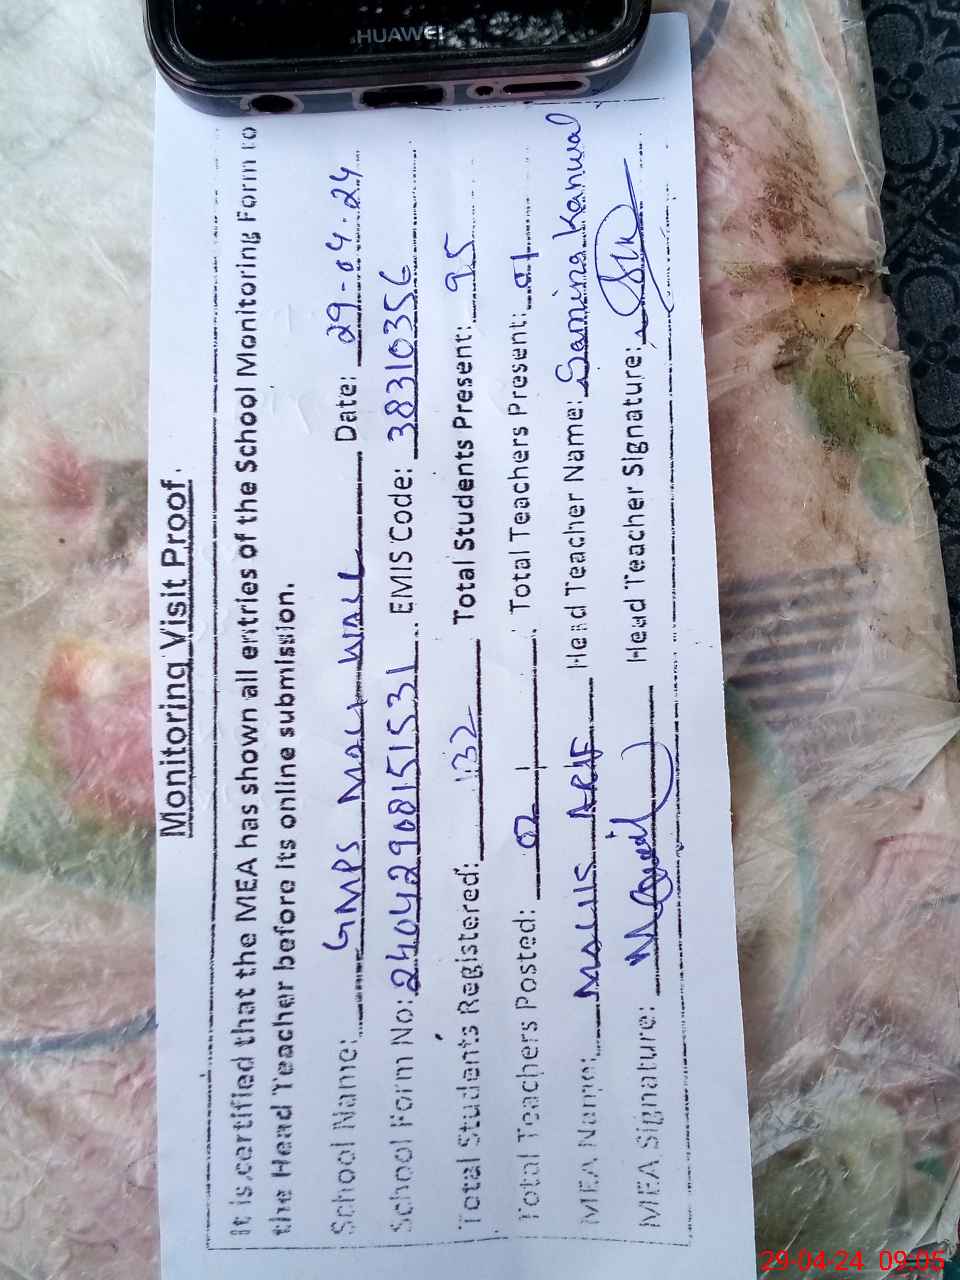 HUAWEI
Monitoring Visit Proof.
It is certified that the MEA has shown all entries of the School Monitoring Form to
the Head Teacher before its online submission.
School Name: GMPS MALI WALI Date: 29-04-24
School Form No: 24042908151531 EMIS Code: 38310356
Total Students Registered: 132 Total Students Present: 95
Total Teachers Posted: 02 Total Teachers Present: 01
MEA Name: Head Teacher Name: Samina Kanwal
MEA Signature: Head Teacher Signature:
29-04-24 09:05